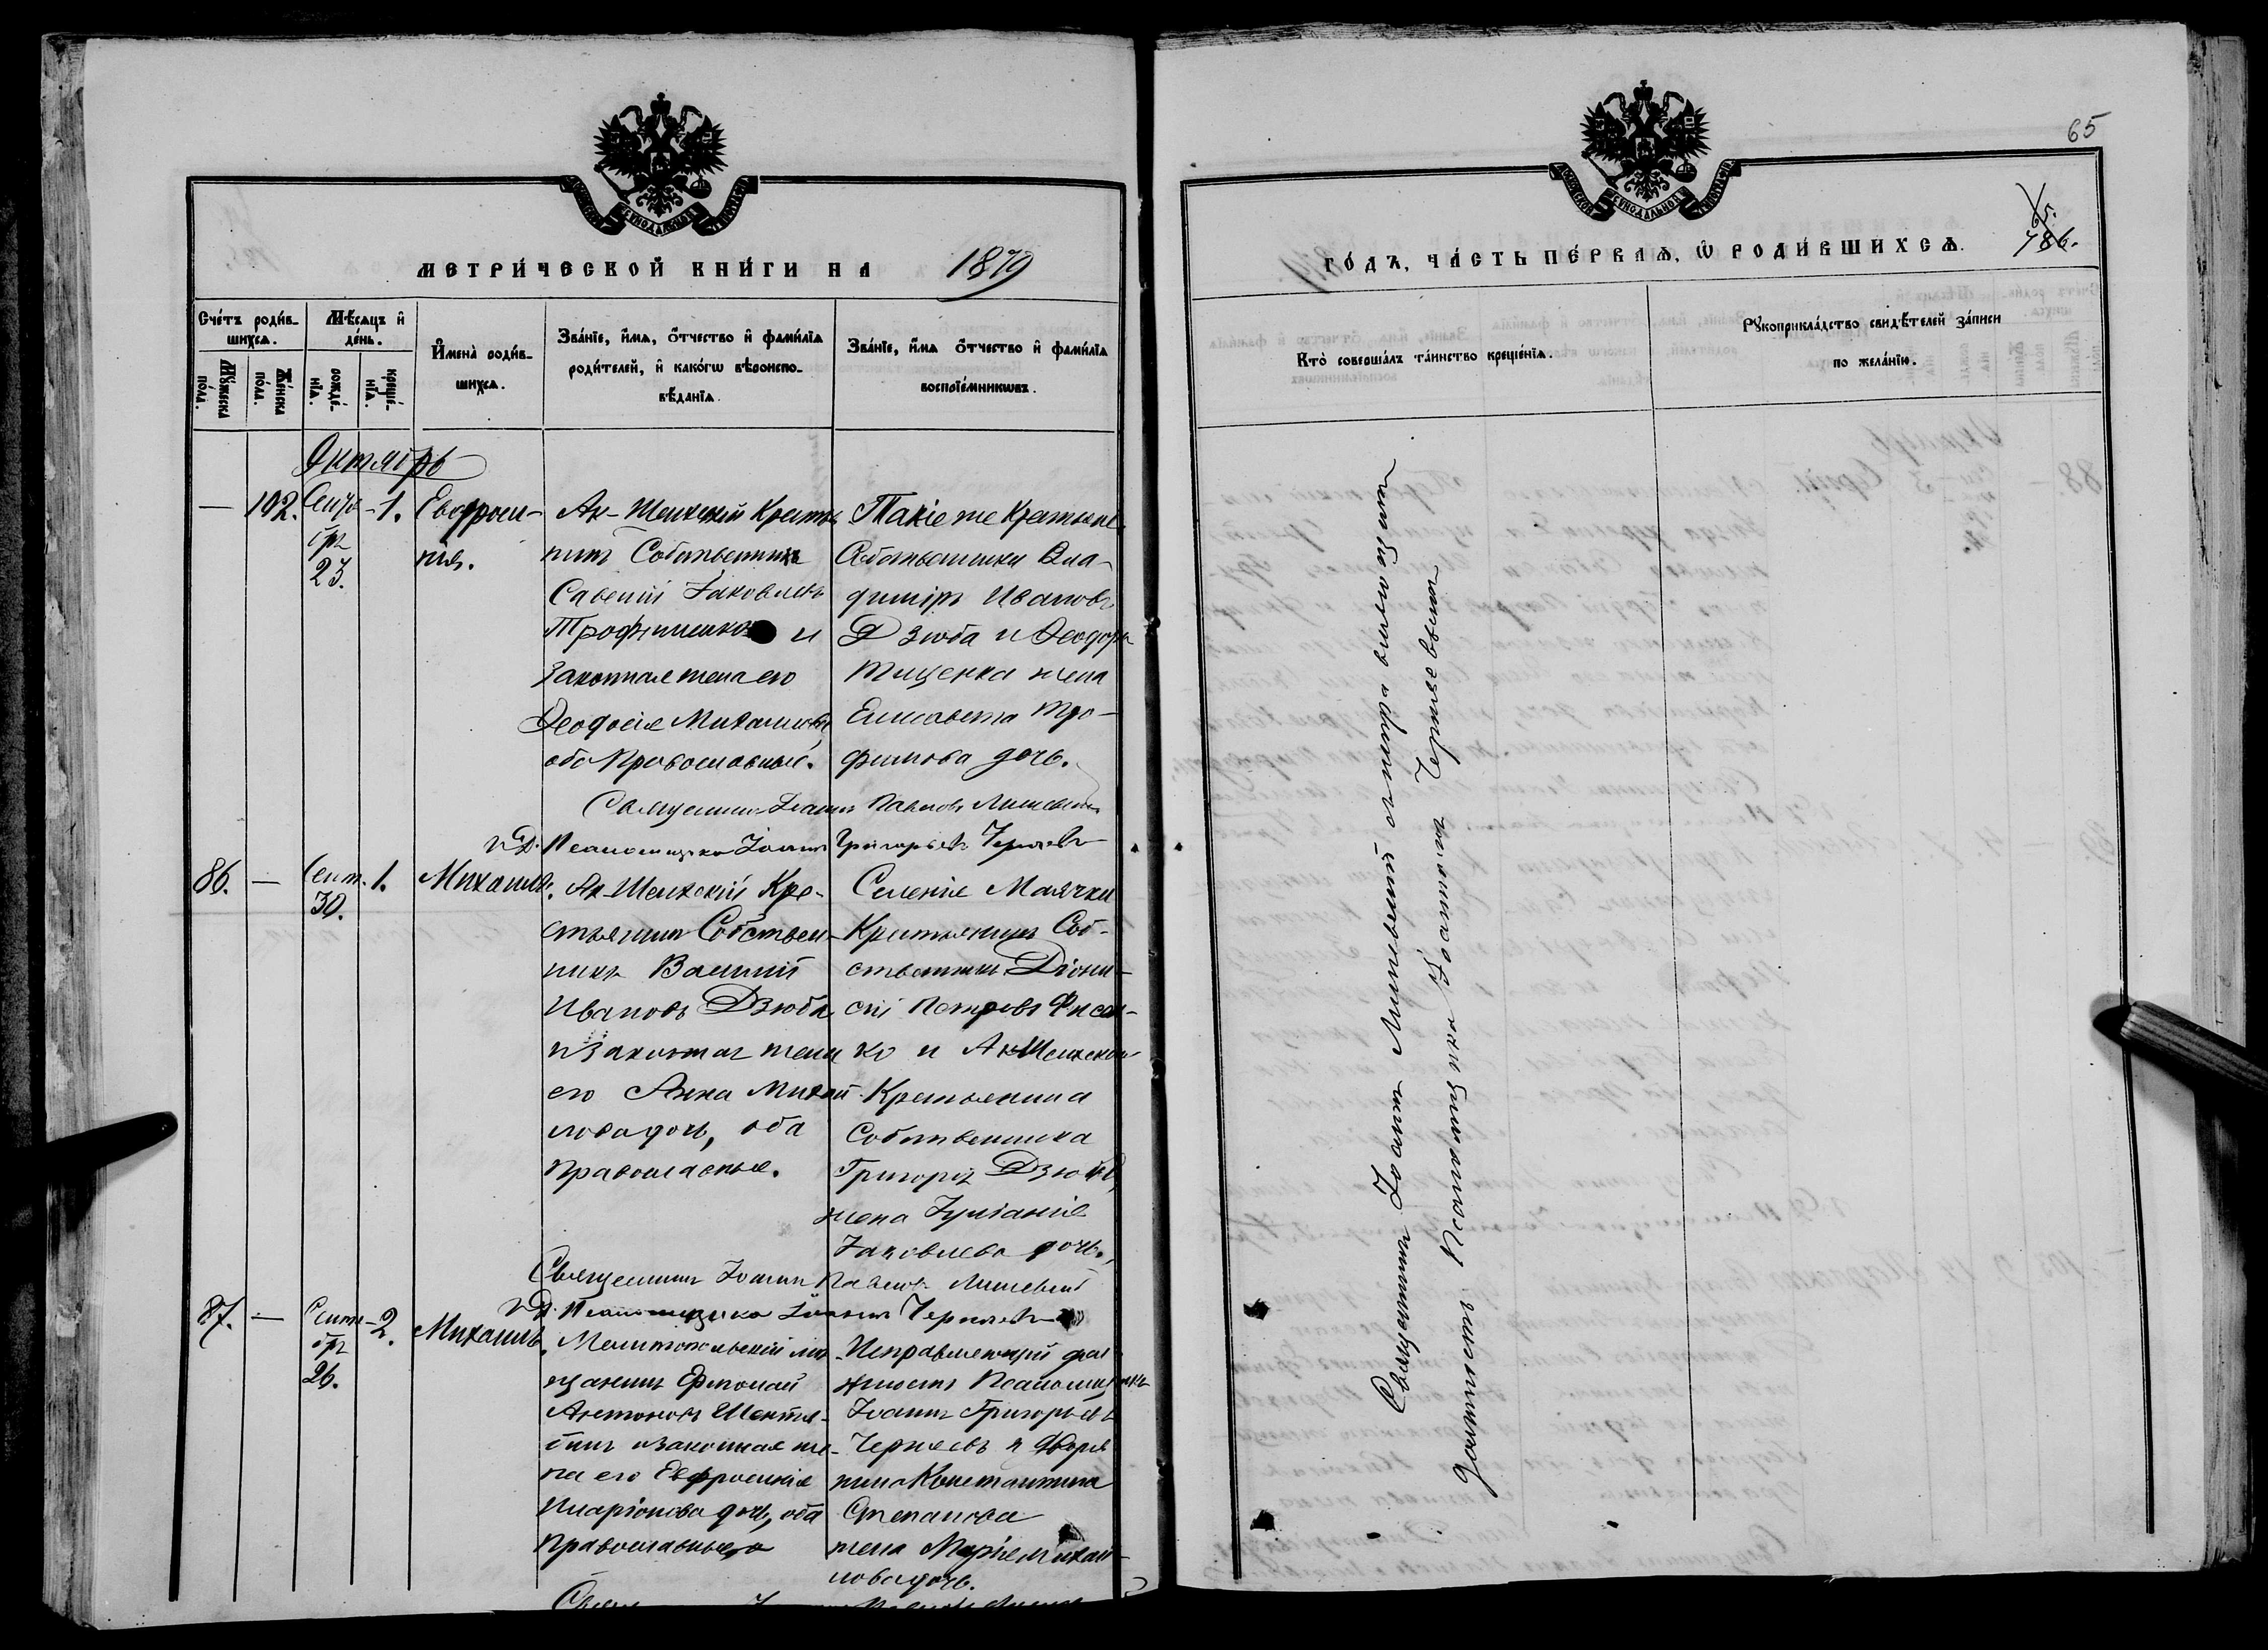 МЕТРИ́ЧЕСКОЙ КНИ́ГИ НА 1879
Сче́тъ роди́в-
шихся.
Мѣ́сяцъ и҆
де́нь.
Мꙋ́жеска
по́ла.
Же́нска
по́ла.
рожде́-
нїѧ.
креще́-
нїѧ.
И҆мена̀ роди́в-
шихсѧ.
Зва́нїе, и҆́мѧ, ѻ҆́тчество и҆ фами́лїѧ
роди́телей, и҆ како́гѡ вѣроиспо-
вѣ́данїѧ.
Зва́нїе, и҆́мѧ ѻ҆́тчество и҆ фами́лїѧ
воспрїе́мникѡвъ.
Октябрь
— 102. Сентя-
бр.
23.
1.
Евфроси-
нія.
Ак-Шеихскій Крестья
нинъ Собственникъ
Савелій Іаковлевъ
Трофименко и
законная жена его
Ѳеодосія Михаилова
оба Православные.
Такіе же Крестьяне
Собственники Вла-
диміръ Ивановъ
Дзюба и Ѳеодора
Тищенка жена
Елисавета Тро-
фимова дочь.
Священникъ Іоаннъ Павловъ
и. д. Псаломщика Іоаннъ Григорьевъ Черняевъ
86. — Сент.
30.
1.
Михаилъ.
Ак-Шеихскій Кре-
стьянинъ Собствен-
никъ Василій
Ивановъ Дзюба
и законная жена
его Анна Михаи
лова дочь, оба
православные.
Селенія Маячки
Крестьянинъ Соб-
ственникъ Діони-
сій Петровъ Фисен-
ко и Ак-Шеихскаго
Крестьянина
Собственника
Григорія Дзюбы
жена Іуліанія
Іаковлева дочь.
Священникъ Іоаннъ Павловъ
и. д. Псаломщика Іоаннъ Черняевъ
87. — Сентя-
бр.
26.
2.
Михаилъ.
Мелитопольскій мѣ
щанинъ Ермолай
Антоновъ
и законная же-
на его Евфросинія
Иларіонова дочь, оба
православные
Исправляющій дол
жность Псаломщика
Іоаннъ Григорьевъ
Черняевъ и дворя
нина Константина
Степанова
жена Марія Михаи-
лова дочь.
65
65.
786.
ГО́ДЪ, ЧА́СТЬ ПЕ́РВАѦ, Ѡ҆ РОДИ́ВШИХСѦ.
Кто̀ соверша́лъ та́инство креще́нїѧ.
Рꙋкоприкла́дство свидѣ́телей за́писи
по жела́нїю.
Священникъ Іоаннъ
должность Псаломщика Іоанномъ Черняевымъ